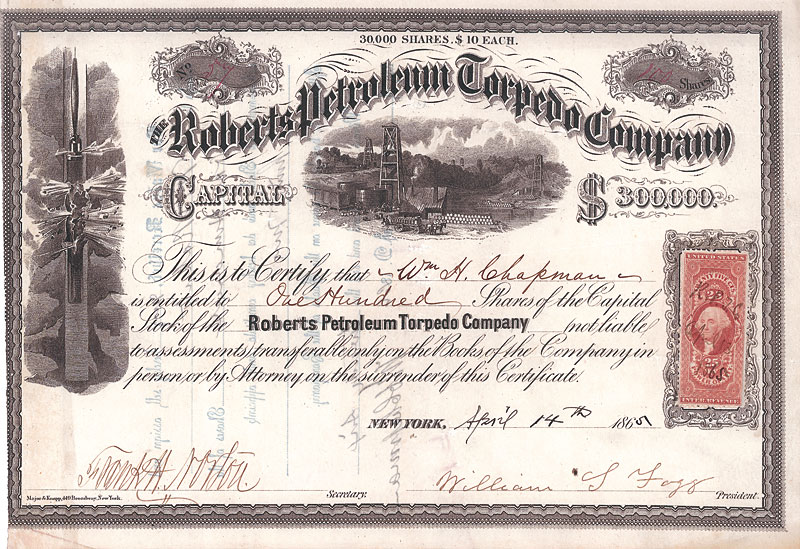 30,000 SHARES. $10 EACH.
No
100 Shares
THE Roberts Petroleum Torpedo Company
CAPITAL $300,000.
This is to Certify, that Wm H. Chapman
is entitled to One Hundred Shares of the Capital
Stock of the Roberts Petroleum Torpedo Company not liable
to assessments, transferable only on the Books of the Company in
person, or by Attorney on the surrender of this Certificate.
NEW YORK, April 14th 1865
UNITED STATES
TWENTY FIVE
25
INTER. REVENUE
Frank H. Norton
William S Fogg
Major & Knapp, 449 Broadway, New York.
Secretary.
President.